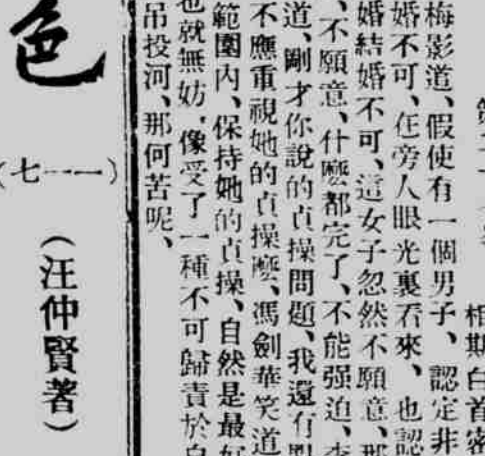 相期白首密
梅影道、假使有一個男子、認定非
婚不可、在旁人眼光裏看來、也認
婚結婚不可、這女子忽然不願意、那
、不願意、什麼都完了、不能强迫、
道、剛才你說的貞操問題、我還有
不應重視她的貞操麼、馮劍華笑道
範圍內、保持她的貞操、自然是最好
也就無妨、像受了一種不可歸責於
吊投河、那何苦呢、
色
(一一七)
(汪仲賢著)